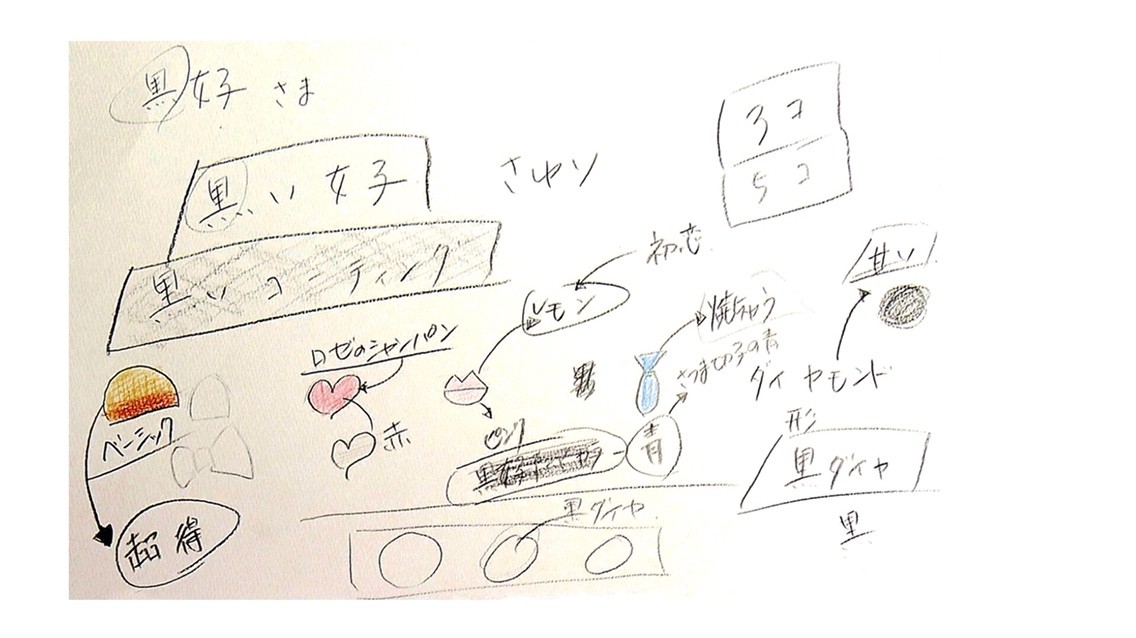 黒女子 さま
3コ
5コ
黒い女子
さゆり
黒いコーティング
初恋
レモン
甘い
焼ちゅう
ロゼのシャンパン
さつま切子の青
ダイヤモンド
形
ベーシック
赤
ピンク
青
黒ダイヤ
黒ダイヤ
黒
超得